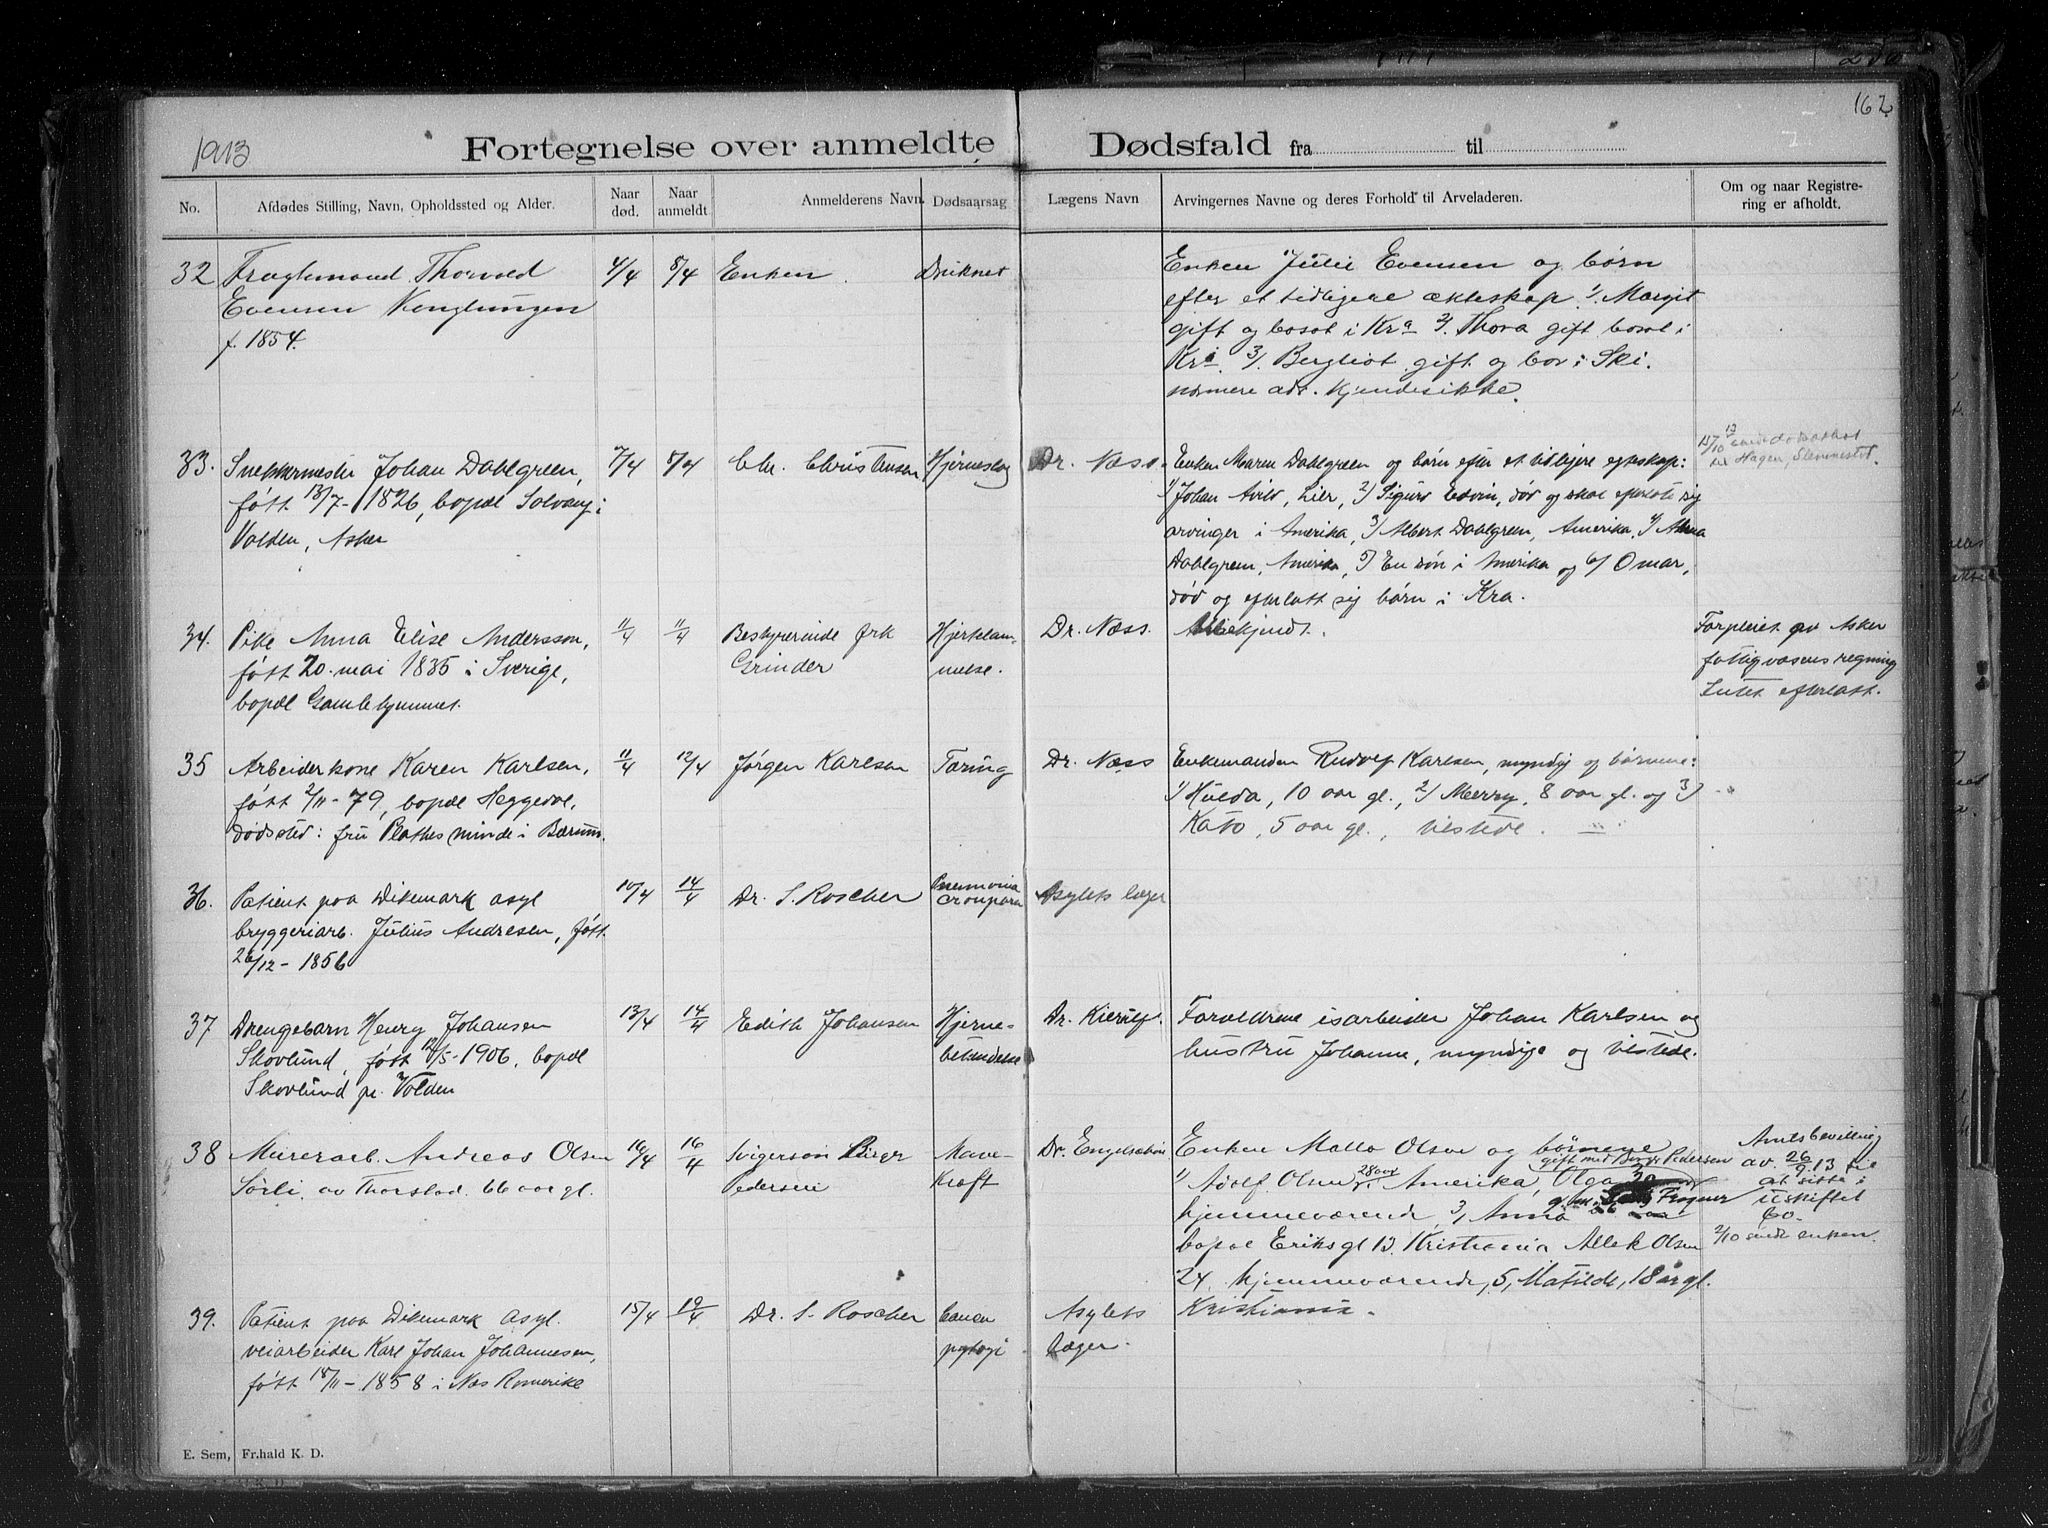 162
1913
Fortegnelse over anmeldte Dødsfald fra til
No.
Afdødes Stilling, Navn, Opholdssted og Alder.
Naar død.
Naar anmeldt
Anmelderens Navn.
Dødsaarsag
Lægens Navn
Arvingernes Navne og deres Forhold til Arveladeren.
Om og naar Registre-
ring er afholdt.
32 Thorvald 4/4 8/4 Enken Druknet Enken Julie Evensen og børn
Evensen f. 1854.
efter et tidligere ækteskap 1/. Margit
gift og bosat i Kra 2/. Thora gift bosat i
Kra. 3/ Bergliot gift og bor i Ski.
nærmere adr. kjendes ikke.
33. Snekkermester Johan Dahlgreen, 7/4 8/4 Chr. Christensen Hjerneslag Dr. Næss. Enken Maren Dahlgreen og børn efter et tidligere egteskap:
født 13/7-1826, bopæl Solvang i
Valden, Asker
1) Johan Arild, Lier, 2) Sigurd Edvin, død og skal efterlate sig
arvinger i Amerika, 3) Albert Dahlgreen, Amerika, 4)
Dahlgreen, Amerika, 5) En søn i Amerika og 6) Omar,
død og efterlatt sig børn i Kra.
15/10 13
Hagen, Slemmestad.
34. Pike Anna Elise Andersson, 11/4 11/4 Bestyrerinde frk Hjertelam- Dr. Næss. Ubekjendt.
født 20. mai 1835 i Sverige, Grinder melse.
bopæl Gamlehjemmet.
Forpleiet av Asker
fattigvæsens regning
Intet efterlatt.
35 Arbeiderkone Karen Karlsen, 11/4 12/4 Jørgen Karlsen Tæring Dr. Næss Enkemanden Rudolf Karlsen, myndig og børnene:
født 2/11-79, bopæl Heggedal,
dødssted: fru Plathes minde i Bærum.
1) Hulda, 10 aar gl., 2) Merry, 8 aar gl. og 3)
Kato, 5 aar gl., tilstede.
36. Patient paa Dikemark asyl 10/4 14/4 Dr. S. Roscher Pneumonia Asylets læger
bryggeriarb. Julius Andresen, født
26/12-1856
37 Drengebarn Henry Johansen 13/4 14/4 Edith Johansen Hjerne- Dr. Kierulf. Forældrene isarbeider Johan Karlsen og
Skovlund, født 12/5-1906, bopæl betændelse hustru Johanne, myndige og tilstede.
Skovlund pr. Valden
38 Murerarb. Andreas Olsen 16/4 16/4 Svigersøn Birger Mave- Dr. Engelschiøn Enken Malla Olsen og børnene
Sørli av Thorstad. 66 aar gl. Pedersen kræft
gift med Birger Pedersen
1) Adolf Olsen 28 aar i Amerika, Olga
hjemmeværende, 3, Anna Frogner
bopæl Eriksgt 13 Kristiania Olsen
24 hjemmeværende, 5, Matilde, 18 år gl.
Kristiania.
Amtsbevilling
av. 26/9.13 til
at sitte i
uskiftet
bo.
2/10 sendt enken.
39. Patient paa Dikemark asyl. 15/4 19/4 Dr. S. Roscher Asylets
veiarbeider Karl Johan Johannesen, læger.
født 18/11-1858 i Næs Romerike
E. Sem, Fr.hald K. D.